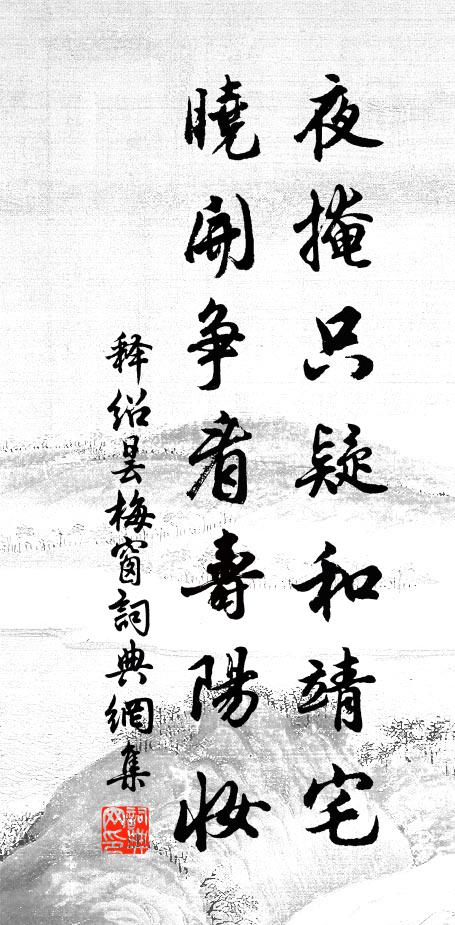 夜掩只疑和靖宅
曉開争看壽陽妝
释绍昙梅窗詞典網集